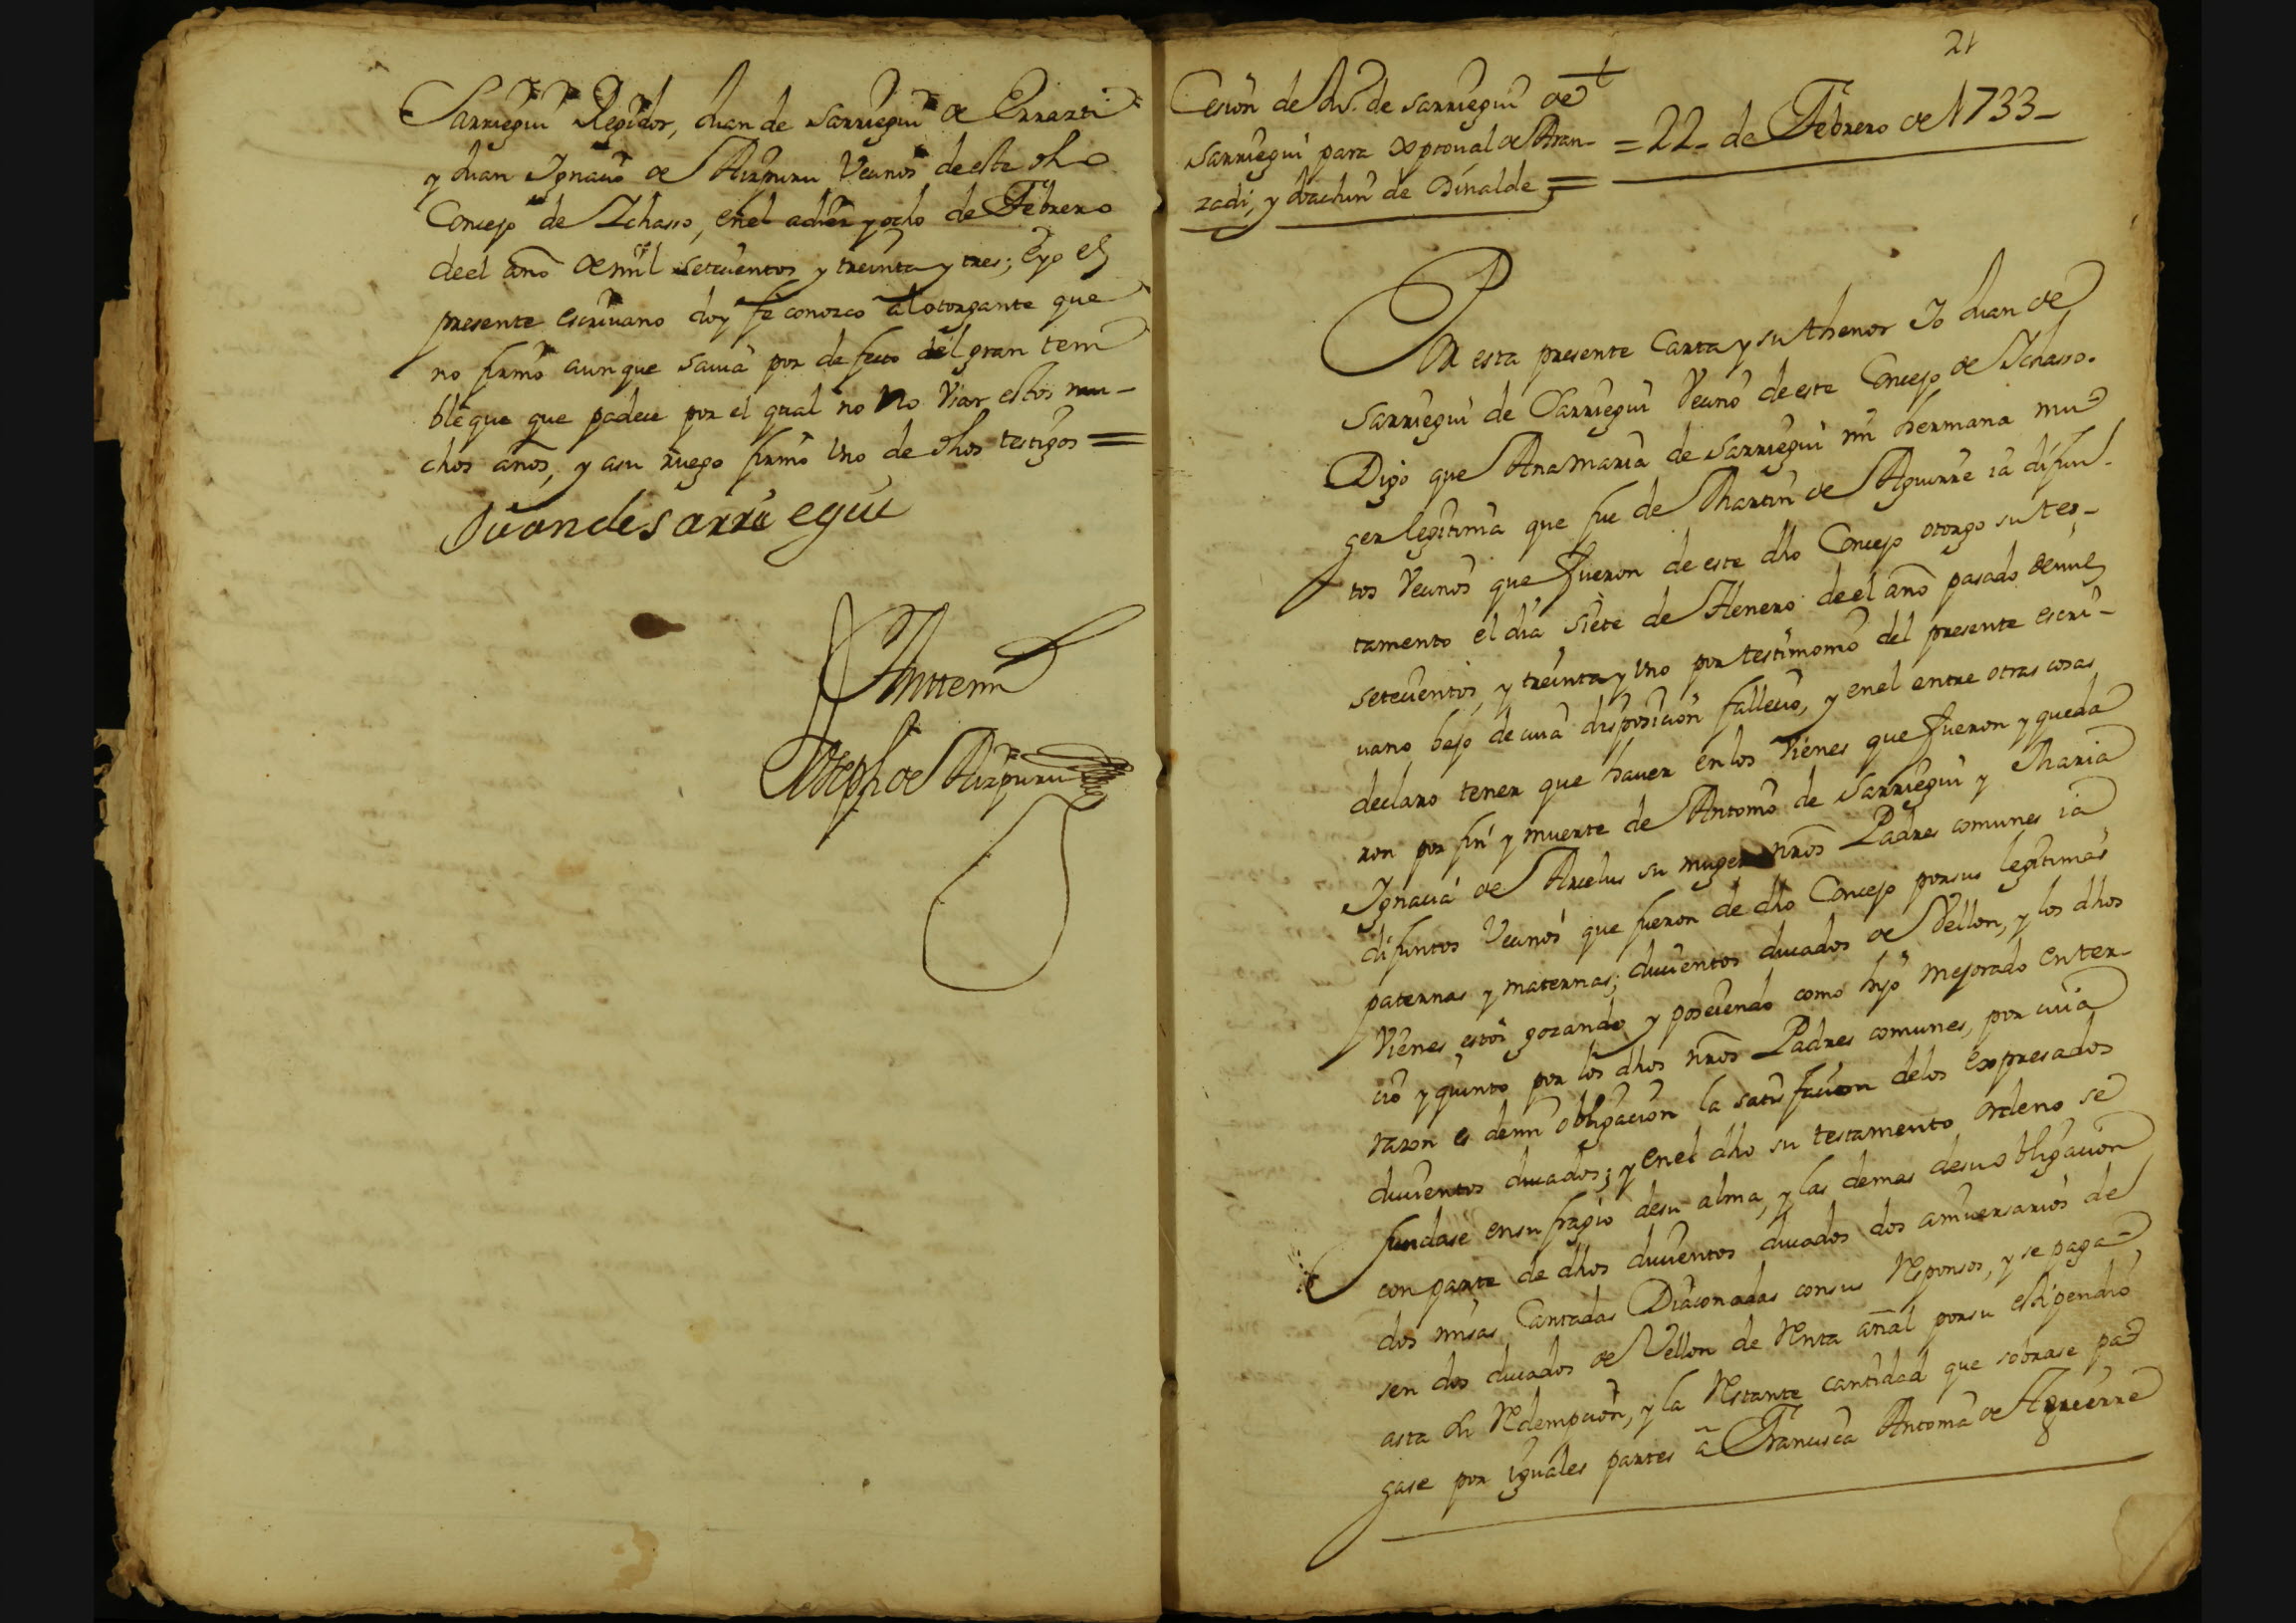 Sarriegui Regidor, Juan de Sarriegui de Errazti
y Juan Ignaçio de Aizpuru Veçinos de este dho
Concejo de Ichasso, en el a diez y ocho de Febrero
de el año de mil seteçientos y treinta y tres; e yo el
presente escriuano doy fe conozco al otorgante que
no firmo aunque sauia por defecto del gran tem
bleque que padeçe por el qual no no Usar estos mu-
chos años, y a su ruego firmo Uno de dhos testigos =
Juan de Sarriegui
Ante mi
Joseph de Aizpuru
21
Cesion de Ju.º de Sarriegui de
Sarriegui para Xptoual de Aran-
zadi, y Joachin de Oinalde =
= 22 - de Febrero de 1733 -
Por esta presente Carta y su thenor Yo Juan de
Sarriegui de Sarriegui Veçino de este Concejo de Ichasso.
Digo que Ana Maria de Sarriegui mi hermana mu
ger legitima que fue de Martin de Aguirre ia difun-
tos Veçinos que fueron de este dho Concejo otorgo su tes-
tamento el dia siete de Henero de el año pasado de mil
seteçientos, y treinta y Uno por testimonio del presente escri-
uano bajo de cuia disposiçion falleçio, y en el entre otras cosas
declaro tener que hauer en los Vienes que fueron y queda
ron por fin y muerte de Antonio de Sarriegui y Maria
Ignaçia de Arcelus su muger nros Padres comunes ia
difuntos Veçinos que fueron de dho Concejo por sus legitimas
paternas y maternas; duçientos ducados de Vellon, y los dhos
Vienes estoi gozando y poseiendo como hijo mejorado en ter-
çio y quinto por los dhos nros Padres comunes, por cuia
razon es de mi obligaçion la satisfaçion de los expresados
duçientos ducados; y en el dho su testamento ordeno se
fundase en sufragio de su alma, y las demas de su obligaçion
con parte de dhos duçientos ducados dos aniuersarios de
dos misas Cantadas Diaconadas con sus Responsos, y se paga-
sen dos ducados de Vellon de Renta añal por su estipendio
asta su Redempçion, y la Restante cantidad que sobrase pa
gase por iguales partes a Françisca Antonia de Aguirre